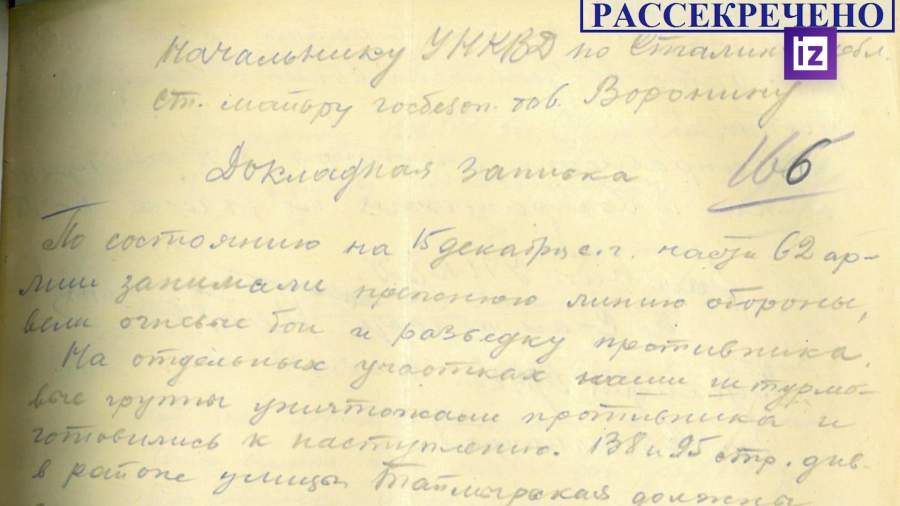 РАССЕКРЕЧЕНО
iz
Начальнику УНКВД по Сталин обл.
ст. майору госбезоп. тов. Воронину
Докладная записка
166
По состоянию на 15 декабря с.г. части 62 ар-
мии занимали прежнюю линию обороны,
вели огневые бои и разведку противника.
На отдельных участках наши штурмо-
вые группы уничтожали противника и
готовились к наступлению. 138 и 95 стр. див.
в районе улицы должны